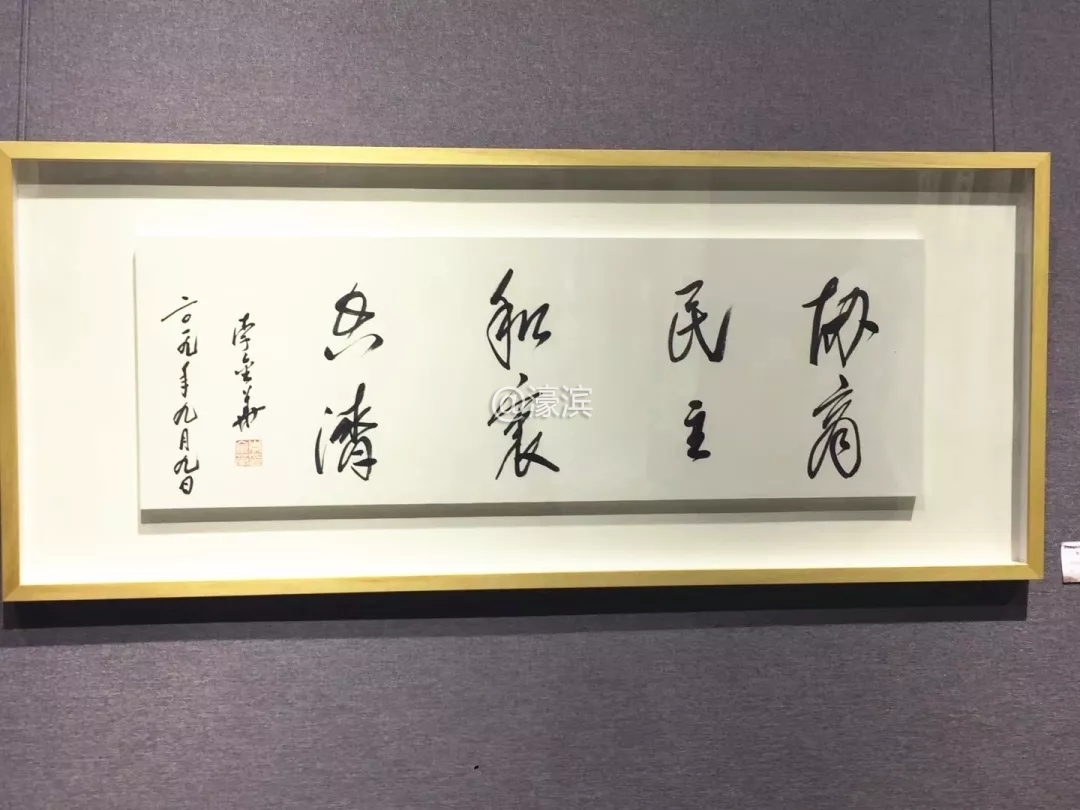 协商
民主
和衷
共济
李金华
二〇一九年九月九日
@濠滨